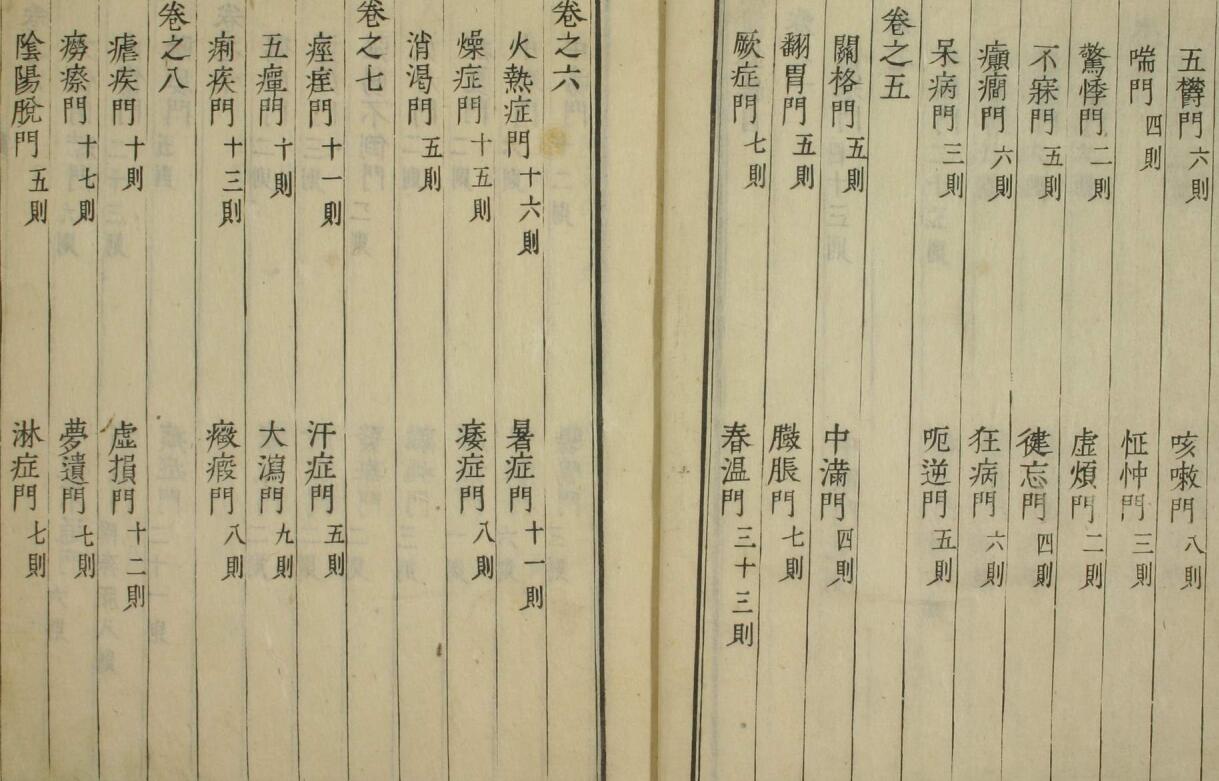 五欝門六則 咳嗽門八則
喘門四則 怔忡門三則
驚悸門二則 虛煩門二則
不寐門五則 健忘門四則
癲癇門六則 狂病門六則
呆病門三則 呃逆門五則
卷之五
關格門五則 中滿門四則
翻胃門五則 臌脹門七則
厥症門七則 春溫門三十三則
卷之六
火熱症門十六則 暑症門十一則
燥症門十五則 痿症門八則
消渴門五則
卷之七
痙痓門十一則 汗症門五則
五癉門十則 大瀉門九則
痢疾門十三則 癥瘕門八則
卷之八
瘧疾門十則 虛損門十二則
癆瘵門十七則 夢遺門七則
陰陽脫門五則 淋症門七則